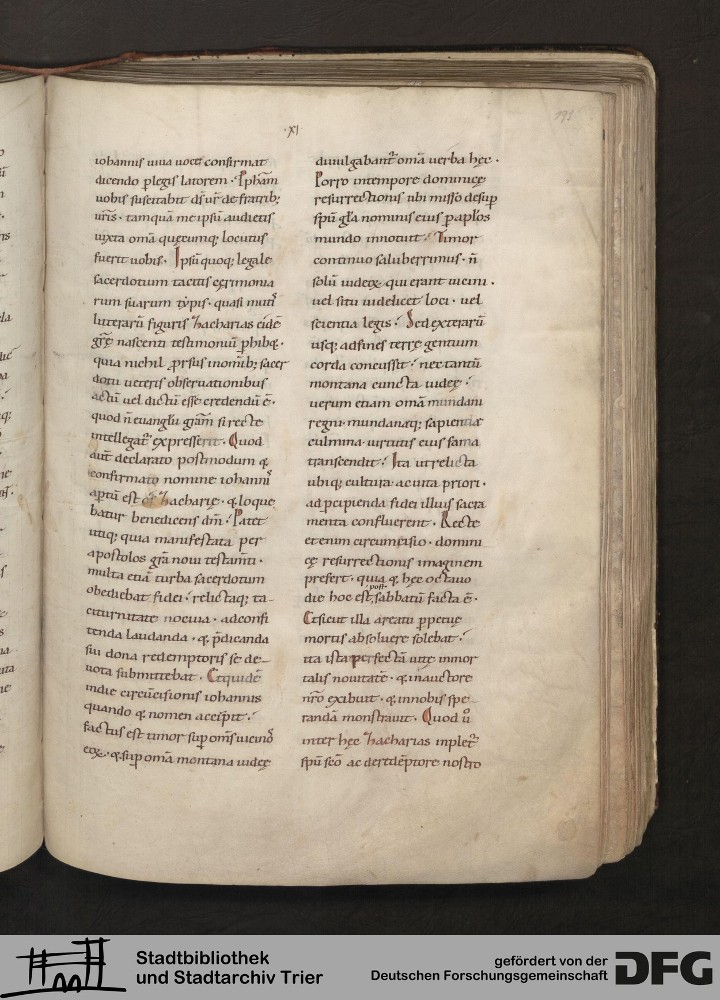 ·XI·
iohannis uiua uoce confirmat
dicendo plegis latorem · Pphām
uobis suscitabit ds̄ ur̄ de fratrib;
ur̄is · tamquā me ipsū audietis
iuxta omā quęcumq; locutus
fuerit uobis · Ipsū quoq; legale
sacerdotium tacitis cęrimonia
rum suarum typis · quasi mutis
litterarū figuris Zacharias eidē
gr̄ę nascenti testimoniū phibę ·
quia nichil prsus in omīb; sacer
dotii ueteris obseruationibus
actū uel dictū esse credendū ē ·
quod n̄ euanglii gr̄am si recte
intellegat̄ expresserit · Quod
aut̄ declarato postmodum &
confirmato nomine iohannis
aptū est os Zacharię · & loque
batur benedicens dm̄ · Patet
utiq; quia manifestata per
apostolos gr̄a noui testam̄ti ·
multa etiā turba sacerdotum
obediebat fidei · relictaq; ta-
citurnitate noxia · ad confi
tenda laudanda · & p̄dicanda
sui dona redemptoris se de-
uota submittebat · Et quidē
in die circūcisionis iohannis
quando & nomen accepit ·
factus est timor sup om̄s uicinos
eoz · & sup omā montana iudeę
diuulgabant̄ omā uerba hęc ·
Porro in tempore dominicę
resurrectionis ubi misso desup
spū gl̄a nominis eius p aplos
mundo innotuit · Timor
continuo saluberrimus · n̄
solū iudeoz qui erant uicini ·
uel situ uidelicet loci · uel
scientia legis · Sed exterarū
usq; ad fines terrę gentium
corda concussit · nec tantū
montana cuncta iudeę ·
uerum etiam omā mundani
regni · mundanaq; sapientia
culmina uirtutis eius fama
transcendit · Ita ut relicta
ubiq; cultura ac uita priori ·
ad pcipienda fidei illius sacra
menta confluerent · Recte
etenim circumcisio · domini
cę resurrectionis imaginem
prefert · quia & hęc octauo
post
die hoc est sabbatū facta ē ·
Et sicut illa a reatu ppetuę
mortis absoluere solebat ·
ita ista perfectā uitę inmor
talis nouitatē · & in auctore
nr̄o exibuit · & in nobis spe
randā monstrauit · Quod ū
inter hęc Zacharias inplet̄
spū scō ac de redēptore nostro
Stadtbibliothek
und Stadtarchiv Trier
gefördert von der
Deutschen Forschungsgemeinschaft
DFG